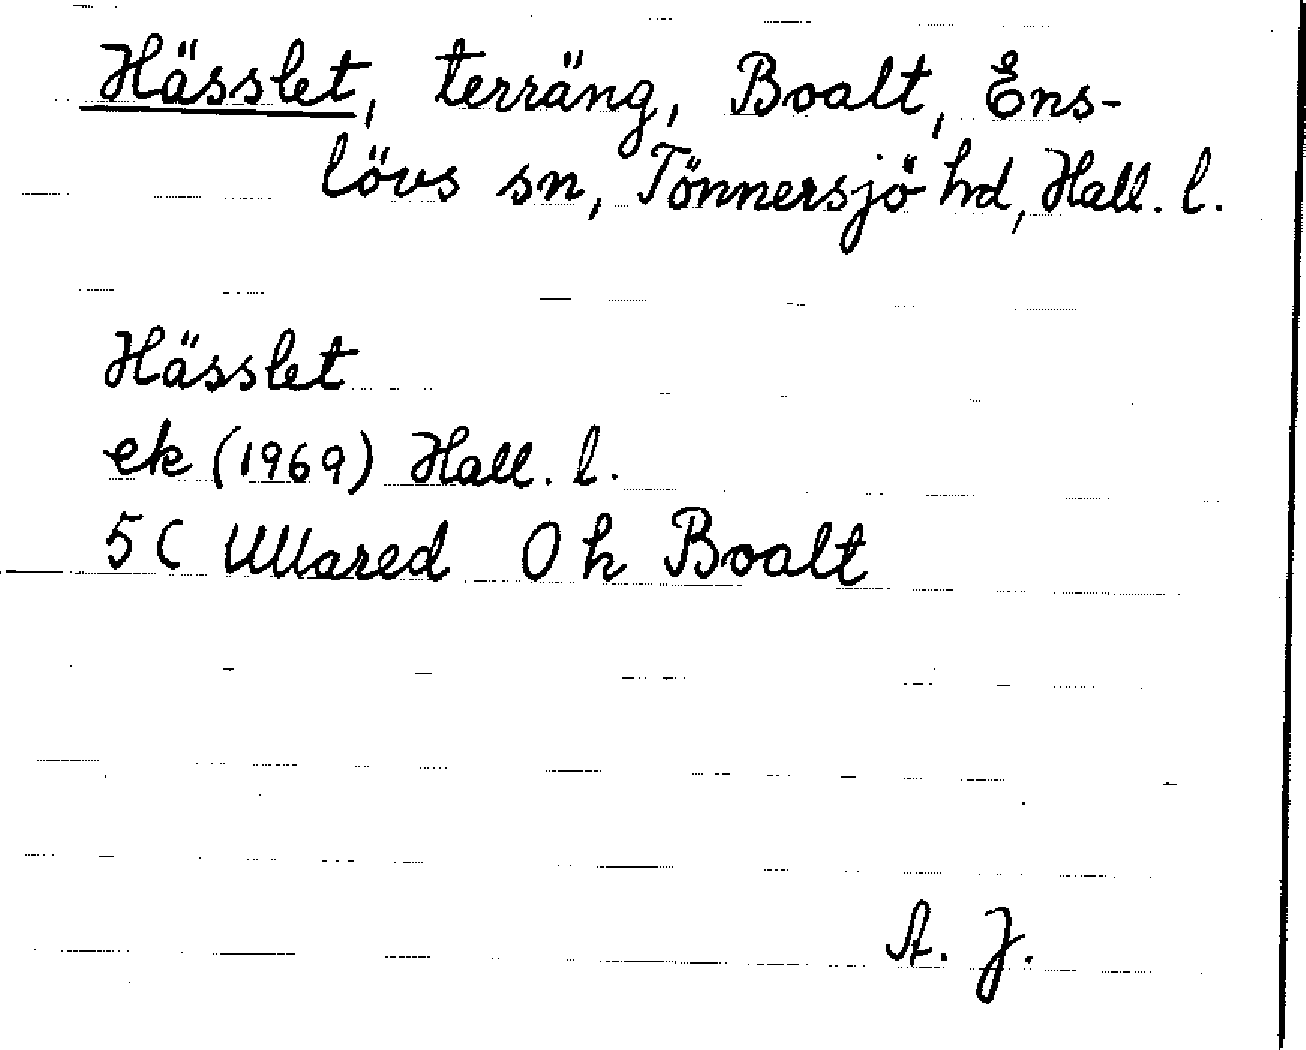 Hässlet, terräng, Boalt, Ens-
lövs sn, Tönnersjö hd, Hall. l.
Hässlet
ek (1969) Hall. l.
5 C Ullared 0 h Boalt
A. J.